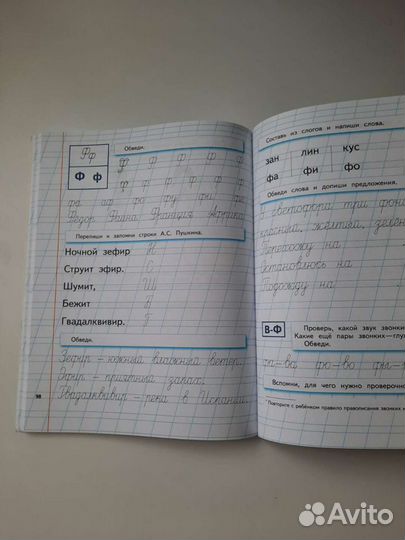 Фф
Ф ф
Обведи.
Ф ф ф ф ф ф
ф ф ф ф ф ф
фа аф фо фу фи фе
Фёдор Фаина Франция Африка
Перепиши и запомни строки А.С. Пушкина.
Ночной зефир Н
Струит эфир. С
Шумит, Ш
Бежит Б
Гвадалквивир. Г
Обведи.
Зефир – южный влажный ветер.
Эфир – приятный запах.
Гвадалквивир – река в Испании.
98
Составь из слогов и напиши слова.
зан лин кус
фа фи фо
Обведи слова и допиши предложения.
У светофора три
красный, жёлтый,
Перехожу на
Остановлюсь на
Подожду на
В-Ф
Проверь, какой звук
Какие ещё пары звонких—
Обведи.
фа–ва фо–во фы–
Вспомни, для чего нужно
* Повторите с ребёнком правило правописания звонких и
Avito